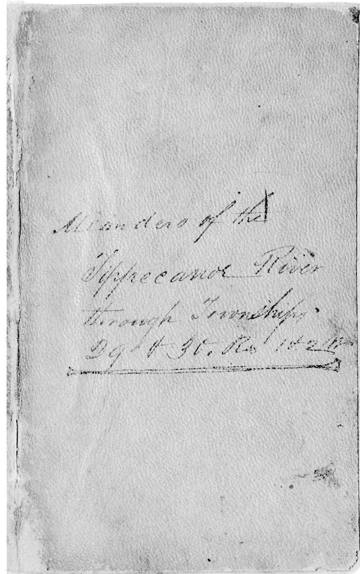 Meanders of the
Tippecanoe River
through Townships
29 & 30. Rs 1 & 2